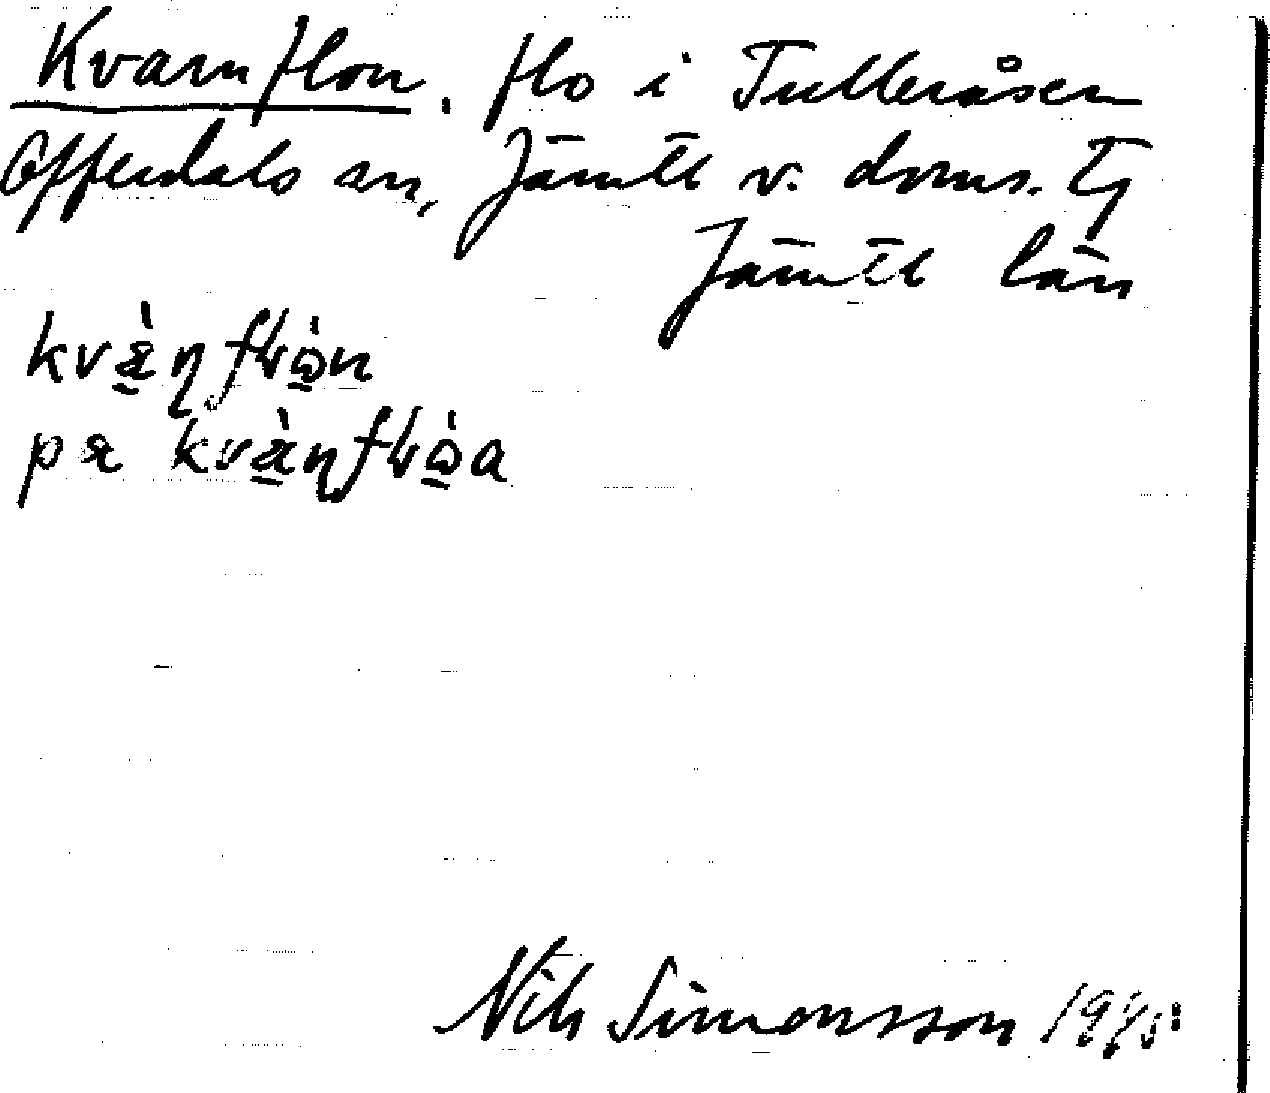 Kvarnflon. flo i Tulleråsen
Offerdals sn, Jämtl v. doms. Tj
Jämtl län
kvæ̀ŋflɷ̀n
pa kvæ̀ŋflɷ̀a
Nils Simonsson 1945